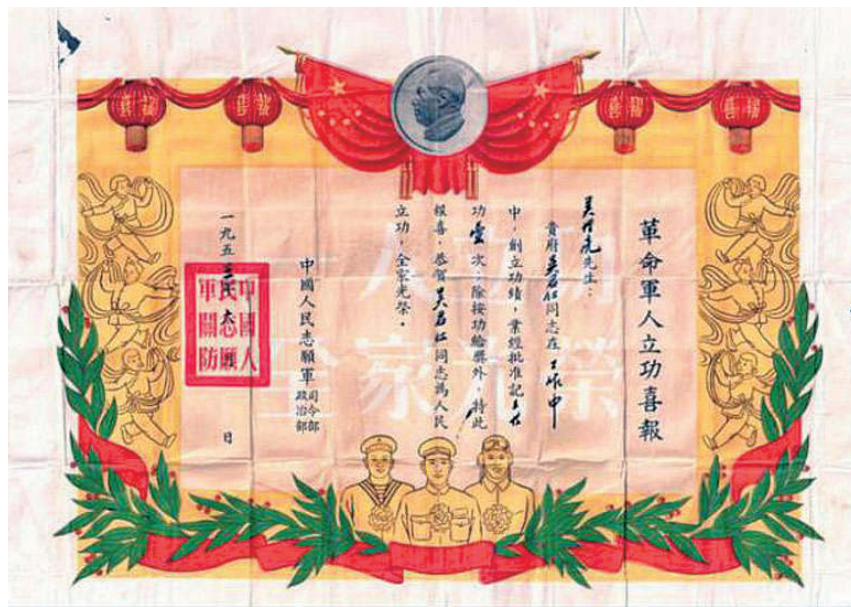 革命軍人立功喜報
先生：
貴府吴君仁同志在工作中
中，創立功績，業經批准記
功壹次，除按功給獎外，特此
報喜，恭賀吴君仁同志為人民
立功，全家光榮。
中國人民志願軍
司令部
政治部
一九五三 日
中國人
民志願
軍關防
一人立功
全家光榮